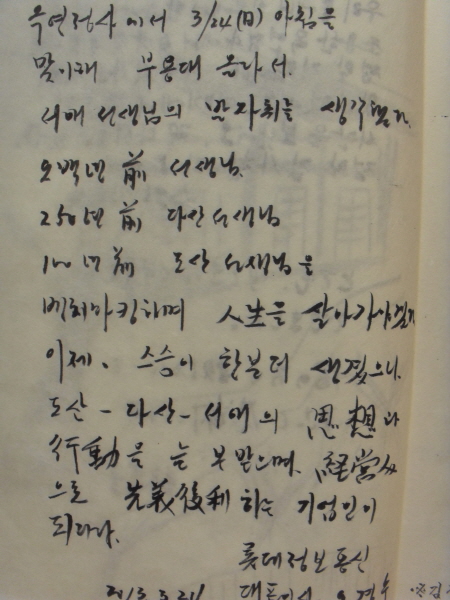 옥연정사에서 3/24(日) 아침을
맞이해 부용대 올라서.
서애 선생님의 발자취를 생각했다.
오백년 前 선생님.
250년 前 다산선생님
100년 前 도산 선생님을
벤치마킹하며 人生을 살아가야겠다
이제. 스승이 한분더 생겼으니.
도산-다산-서애의 思想과
行動을 늘 본받으며. 経営
으로 先義後利 하는 기업인이
되리라.
롯데정보통신
2013.3.24 대표이사